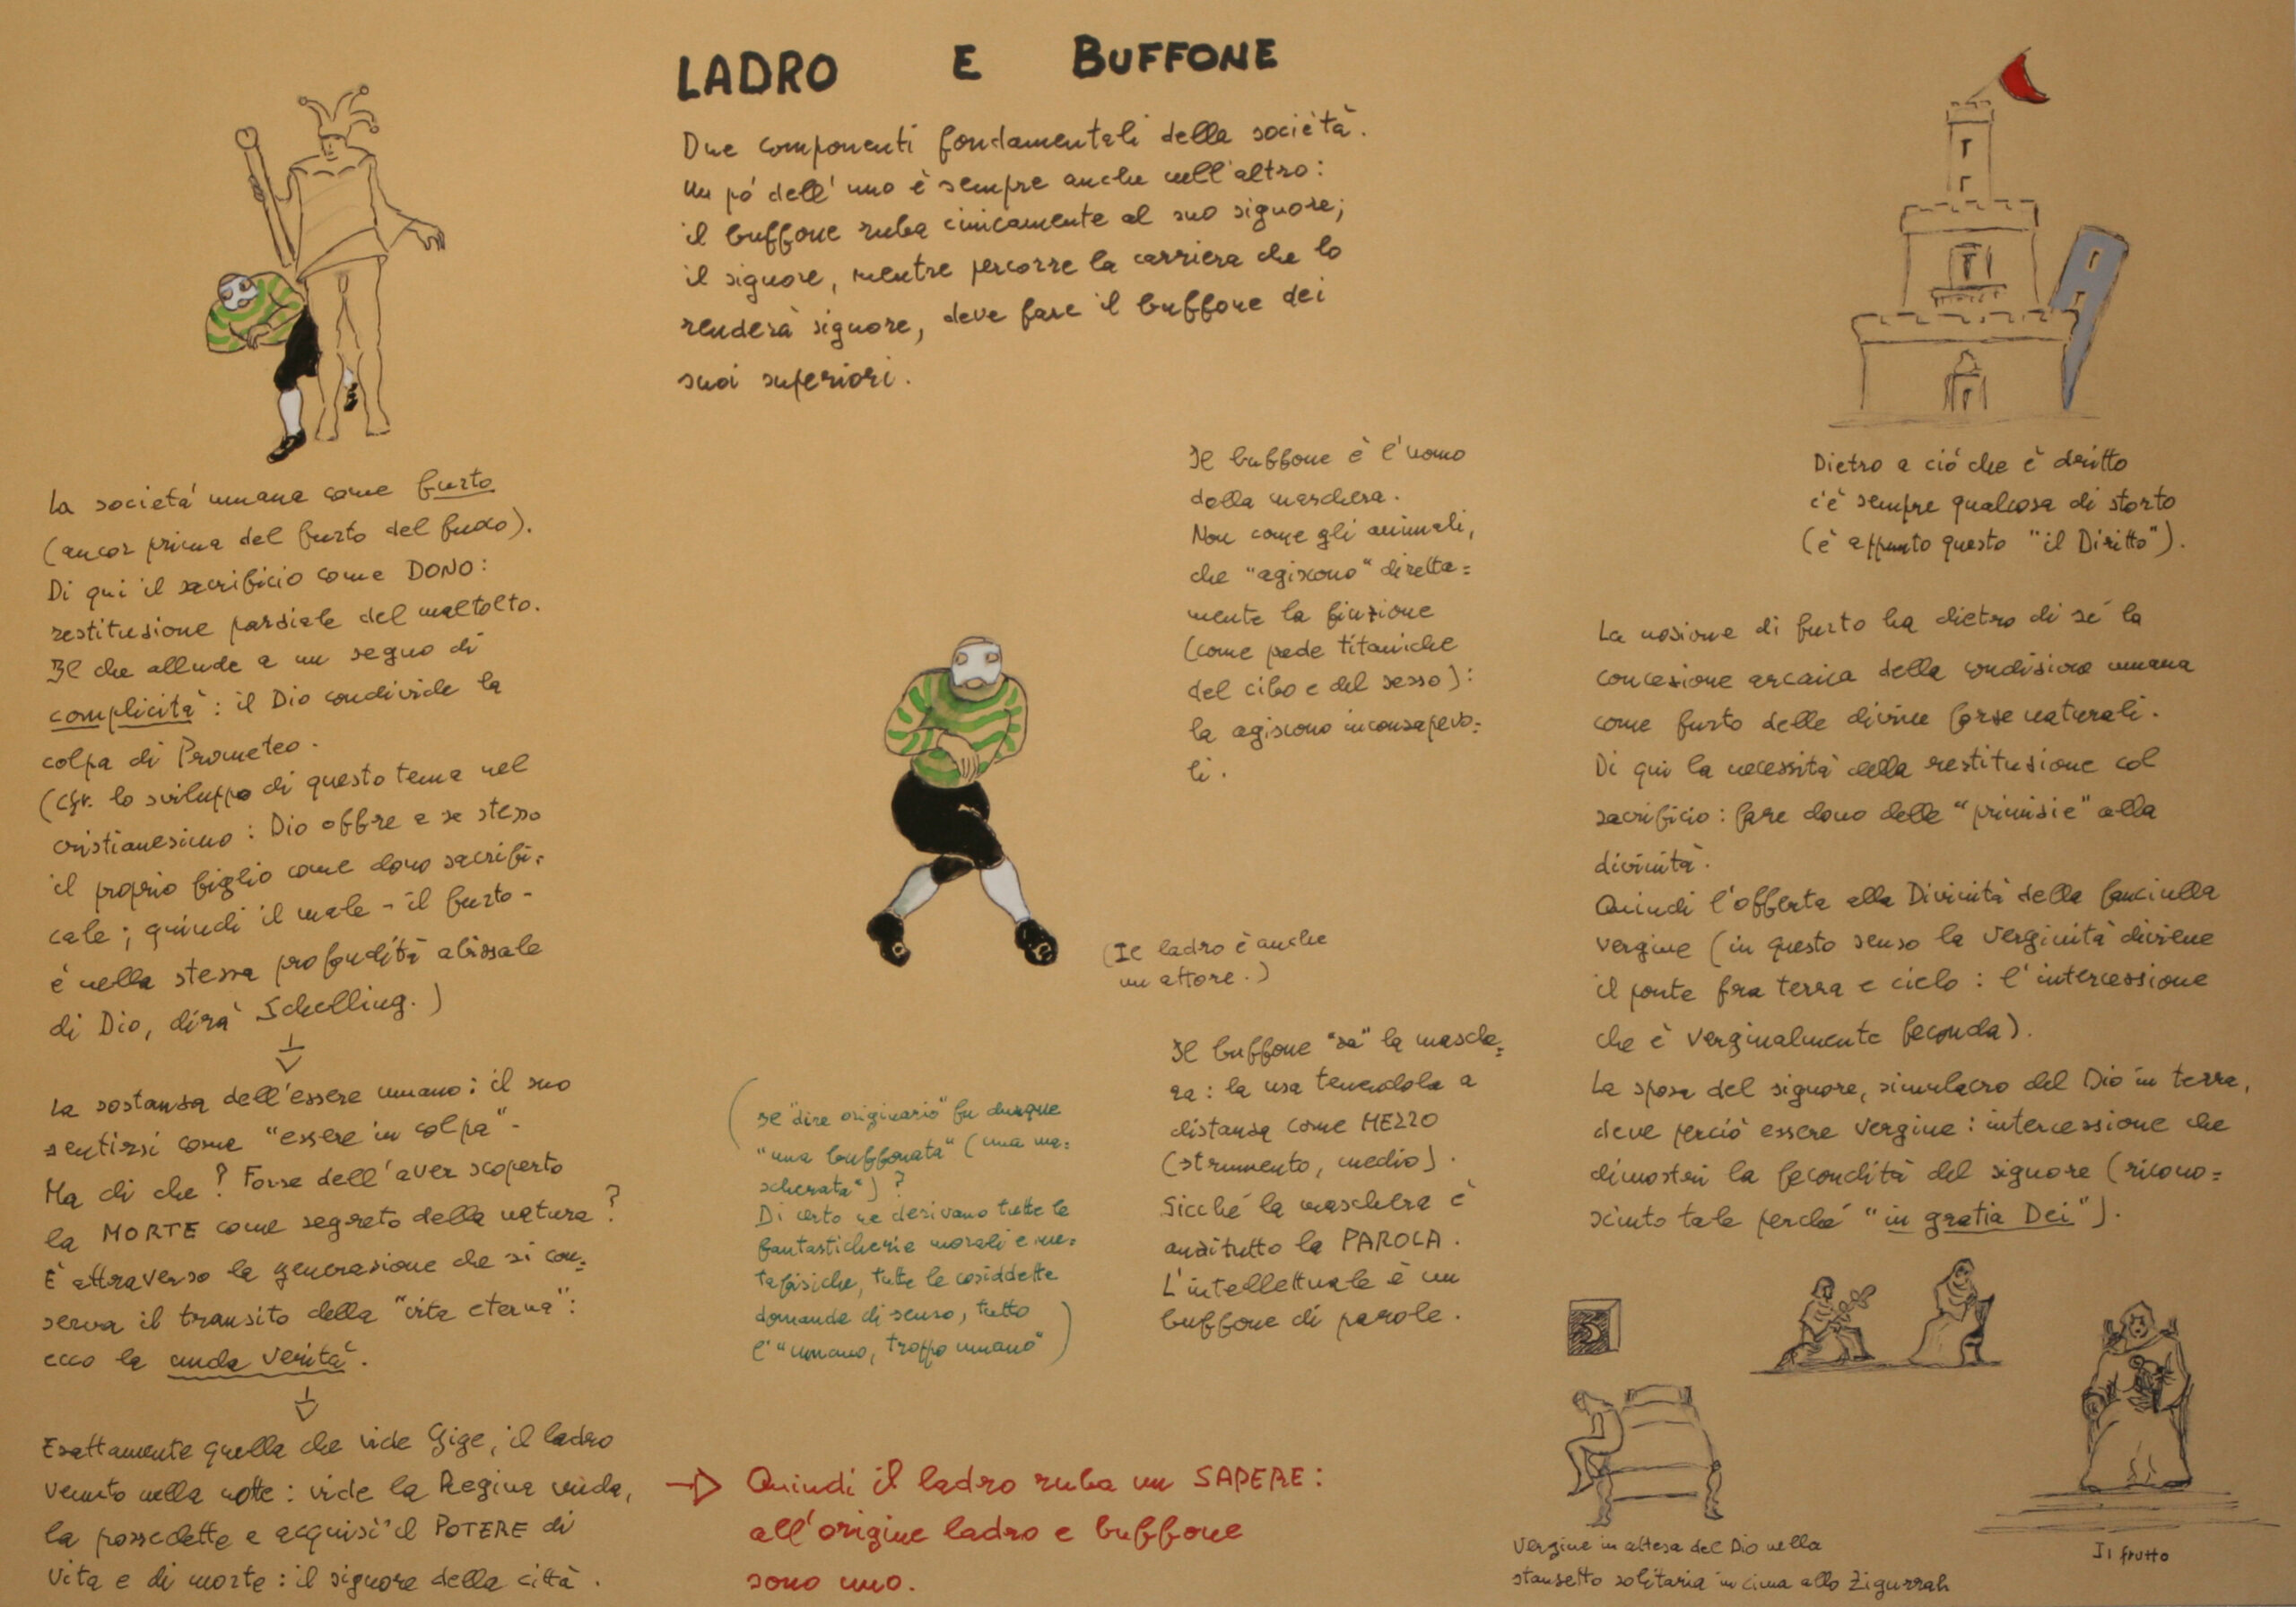 LADRO E BUFFONE
Due componenti fondamentali della società.
Un pó dell'uno è sempre anche nell'altro:
il buffone ruba cinicamente al suo signore;
il signore, mentre percorre la carriera che lo
renderà signore, deve fare il buffone dei
suoi superiori.
La societá umana come furto
(ancor prima del furto del fuoco).
Di qui il sacrificio come DONO:
restituzione parziale del maltolto.
Il che allude a un segno di
complicità: il Dio condivide la
colpa di Prometeo.
(cfr. lo sviluppo di questo tema nel
cristianesimo: Dio offre a se stesso
il proprio figlio come dono sacrifi=
cale; quindi il male - il furto -
è nella stessa profondità abissale
di Dio, dirà Schelling.)
La sostanza dell'essere umano: il suo
sentirsi come "essere in colpa".
Ma di che? Forse dell'aver scoperto
la MORTE come segreto della natura?
È attraverso la generazione che si con=
serva il transito della "vita eterna":
ecco la nuda verità.
Esattamente quella che vide Gige, il ladro
venuto nella notte: vide la Regina nuda,
la possedette e acquisì il POTERE di
vita e di morte: il signore della città.
Il buffone è l'uomo
della maschera.
Non come gli animali,
che "agiscono" diretta=
mente la finzione
(come prede titaniche
del cibo e del sesso):
la agiscono inconsapevo=
li.
(Il ladro è anche
un attore.)
Il buffone "sa" la masche=
ra: la usa tenendola a
distanza come MEZZO
(strumento, medio).
Sicché la maschera è
anzitutto la PAROLA.
L'intellettuale è un
buffone di parole.
(se "dire originario" fu dunque
"una buffonata" (una ma=
scherata")?
Di certo ne derivano tutte le
fantasticherie morali e me=
tafisiche, tutte le cosiddette
domande di senso, tutto
l'"umano, troppo umano")
Quindi il ladro ruba un SAPERE:
all'origine ladro e buffone
sono uno.
Dietro a ció che è dritto
c'è sempre qualcosa di storto
(è appunto questo "il Diritto").
La nozione di furto ha dietro di sé la
concezione arcaica della condizione umana
come furto delle divine forze naturali.
Di qui la necessità della restituzione col
sacrificio: fare dono delle "primizie" alla
divinità.
Quindi l'offerta alla Divinità della fanciulla
vergine (in questo senso la verginità diviene
il ponte fra terra e cielo: l'intercessione
che è verginalmente feconda).
La sposa del signore, simulacro del Dio in terra,
deve perciò essere vergine: intercessione che
dimostri la fecondità del signore (ricono=
sciuto tale perché "in gratia Dei").
Vergine in attesa del Dio nella
stanzetta solitaria in cima allo Zigurrah
Il frutto